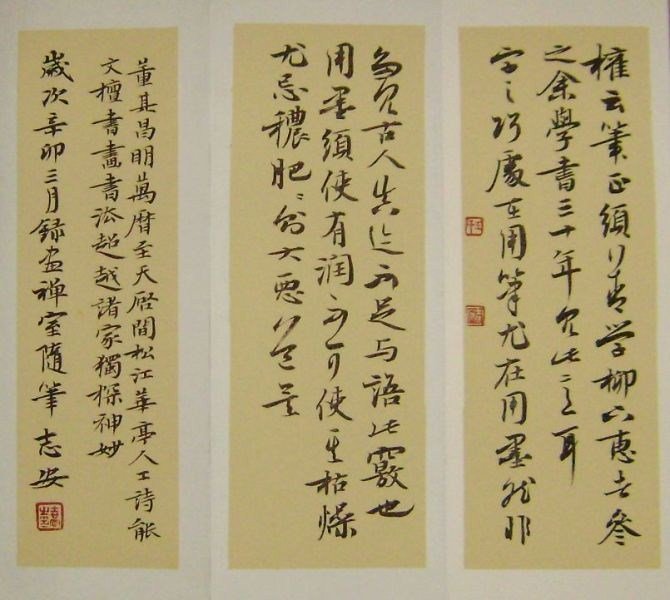 權云筆正須以善学柳下惠者參
之余學書三十年見此意耳
字之巧處在用筆尤在用墨然非
多見古人真迹不足与語此竅也
用墨須使有润不可使其枯燥
尤忌穠肥肥則大惡道矣
董其昌明萬曆至天啓間松江華亭人工詩能
文檀書畫書法超越諸家獨探神妙
歲次辛卯三月録画禅室隨筆 志安